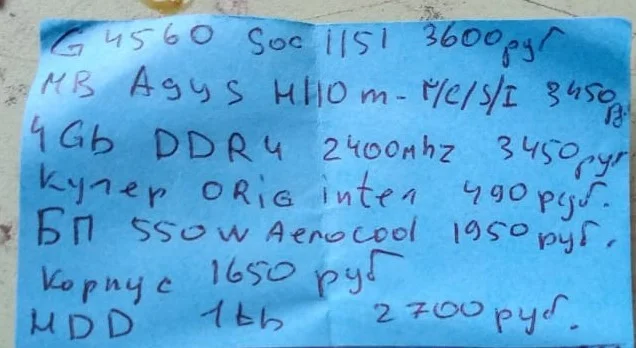 G 4560 Soc 1151 3600руб
MB Asus H110m-R/C/S/I 3450р.
4Gb DDR4 2400mhz 3450руб
Кулер ORiG inteл 490руб.
БП 550W Aerocool 1950руб.
Корпус 1650 руб
HDD 1tb 2700руб.